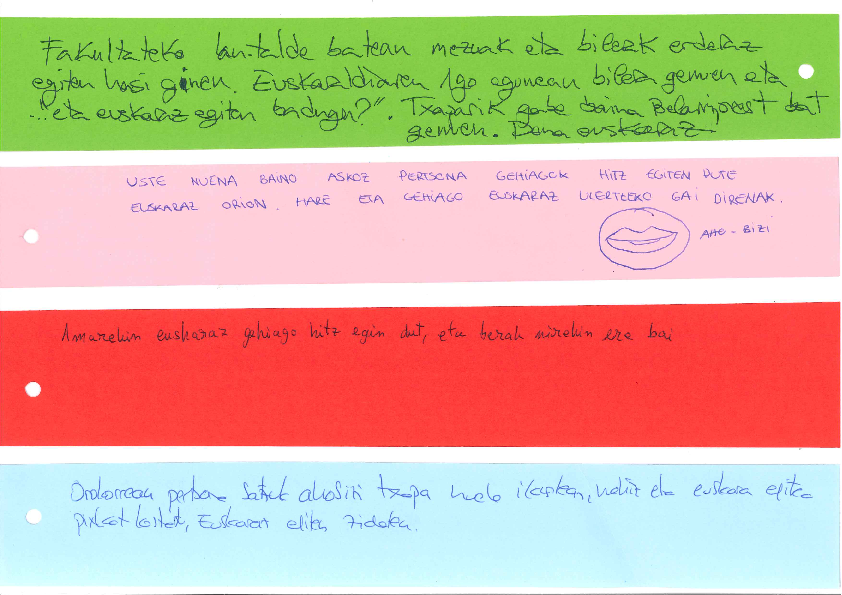 Fakultateko lan-talde batean mezuak eta bilerak erderaz
egiten hasi ginen. Euskaraldiaren 1go egunean bilera genuen eta
"...eta euskaraz egiten badugu?". Txapárik gabe baina Belarriprest bat
genuen. Dena euskaraz
USTE NUENA BAINO ASKOZ PERTSONA GEHIAGOK HITZ EGITEN DUTE
EUSKARAZ ORION. HARE ETA GEHIAGO EUSKARAZ ULERTZEKO GAI DIRENAK.
AHO-BIZI
Amarekin euskaraz gehiago hitz egin dut, eta berak nirekin ere bai
Orokorrean pertsona batzuk ahobizi txapa nuela ikusten, nahiz eta euskara egitea
pixkat kostat, Euskaraz egiten zidaten.